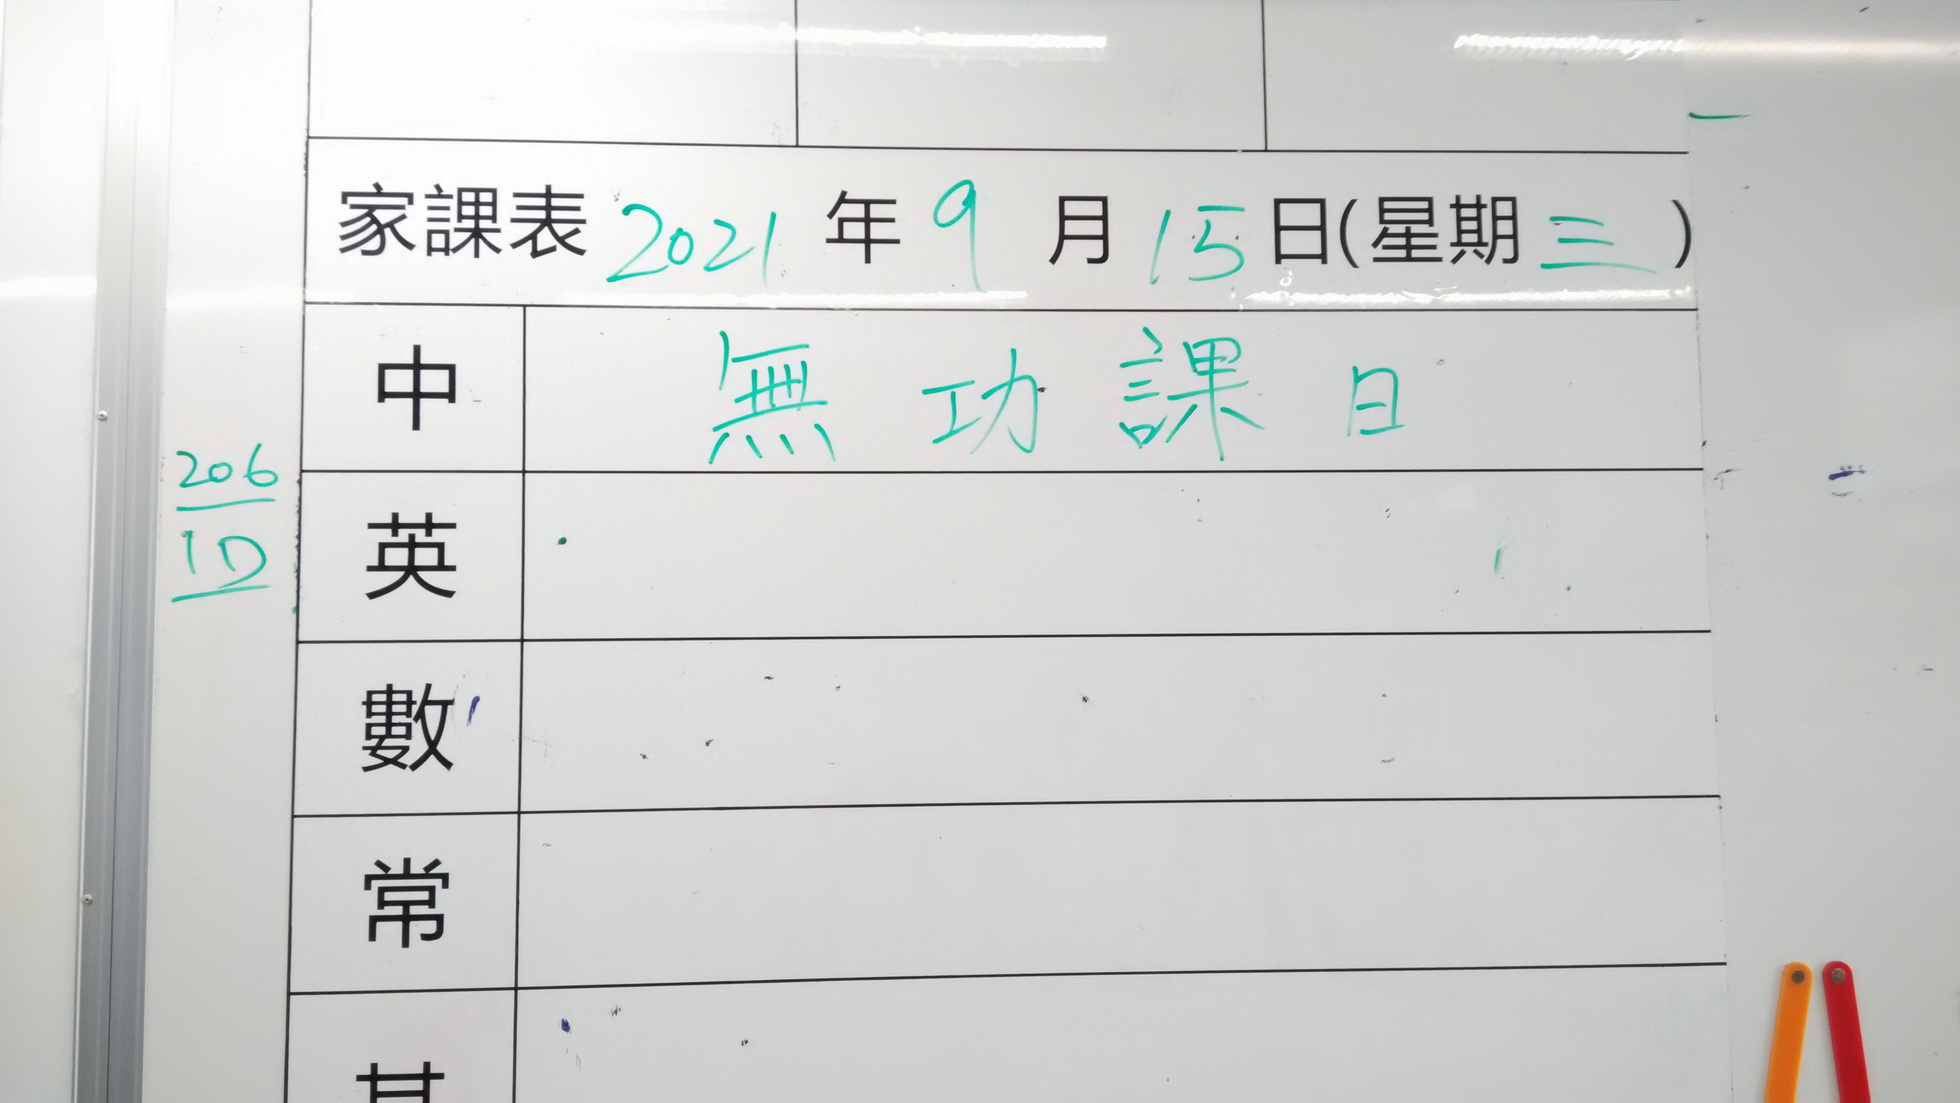 家課表 2021 年 9 月 15 日(星期 三 )
中 無功課日
206
1D
英
數
常